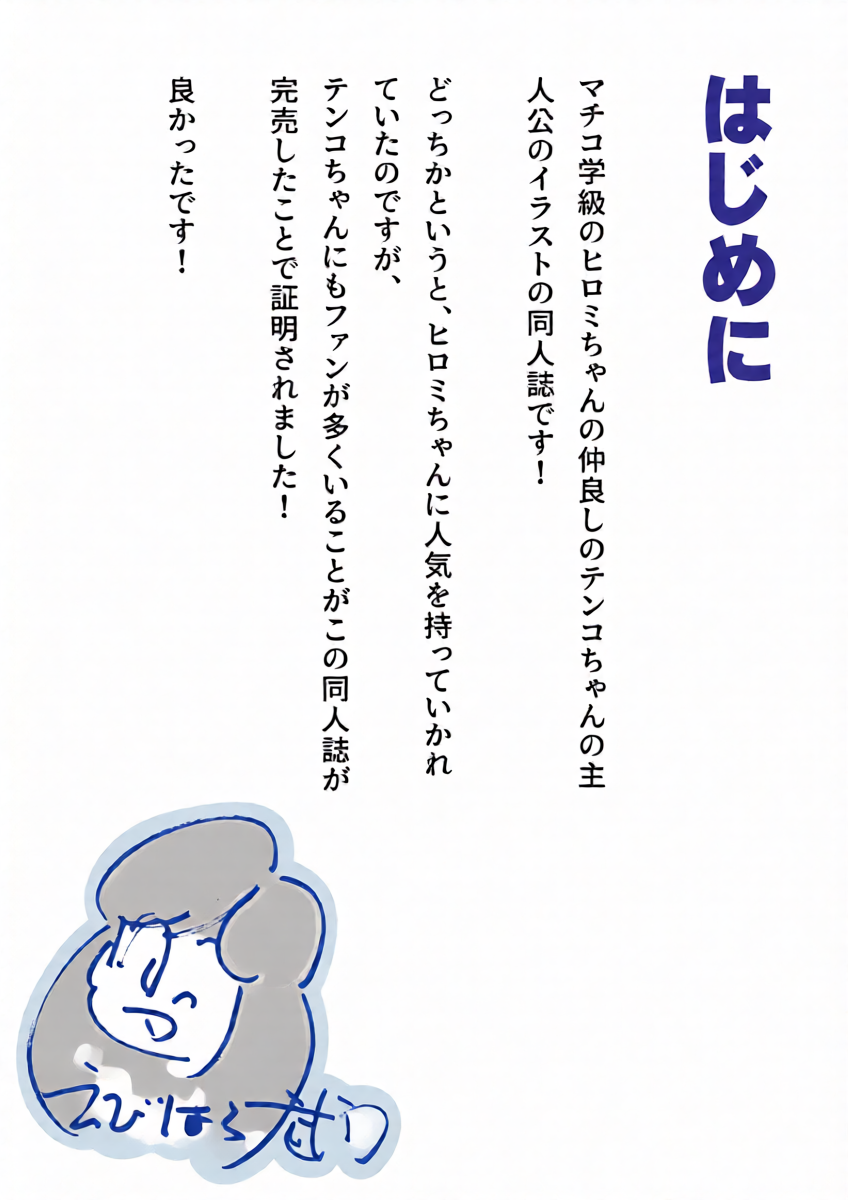 はじめに
マチコ学級のヒロミちゃんの仲良しのテンコちゃんの主
人公のイラストの同人誌です！
どっちかというと、ヒロミちゃんに人気を持っていかれ
ていたのですが、
テンコちゃんにもファンが多くいることがこの同人誌が
完売したことで証明されました！
良かったです！
えびはら武司